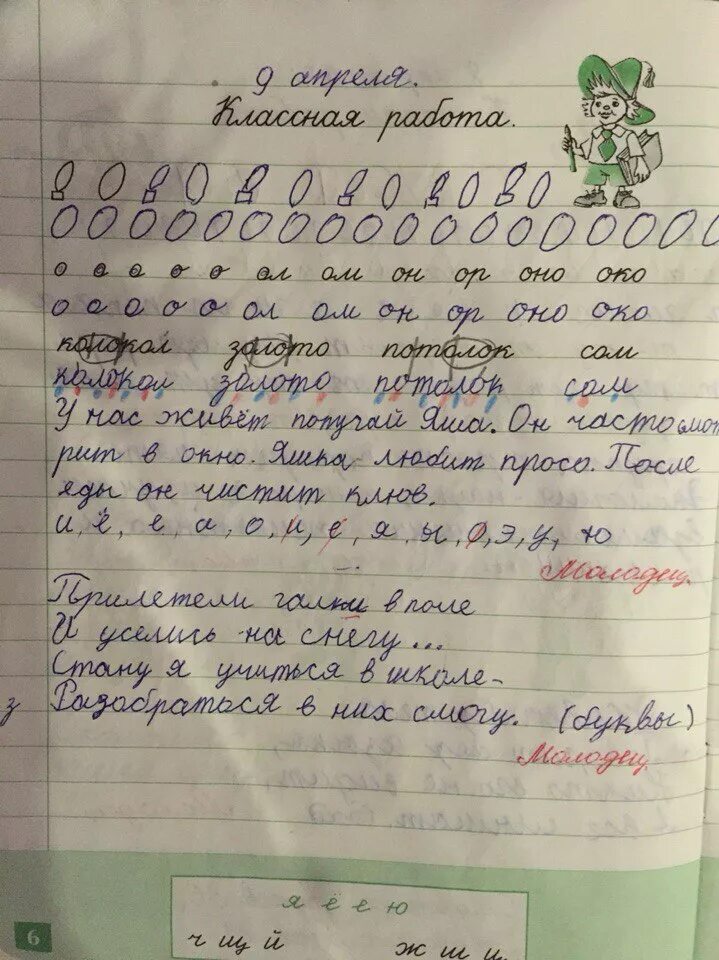 9 апреля.
Классная работа.
о о о о о ол ом он ор оно око
о о о о о ол ом он ор оно око
колокол золото потолок сом
колокол золото потолок сом
У нас живёт попугай Яша. Он часто смот
рит в окно. Яшка любит просо. После
еды он чистит клюв.
и, ё, е, а, о, и, е, я, ы, о, э, у, ю
Молодец.
Прилетели галки в поле
И уселись на снегу...
Стану я учиться в школе-
з Разобраться в них смогу. (буквы)
Молодец
я ё е ю
6
ч щ й ж ш ц